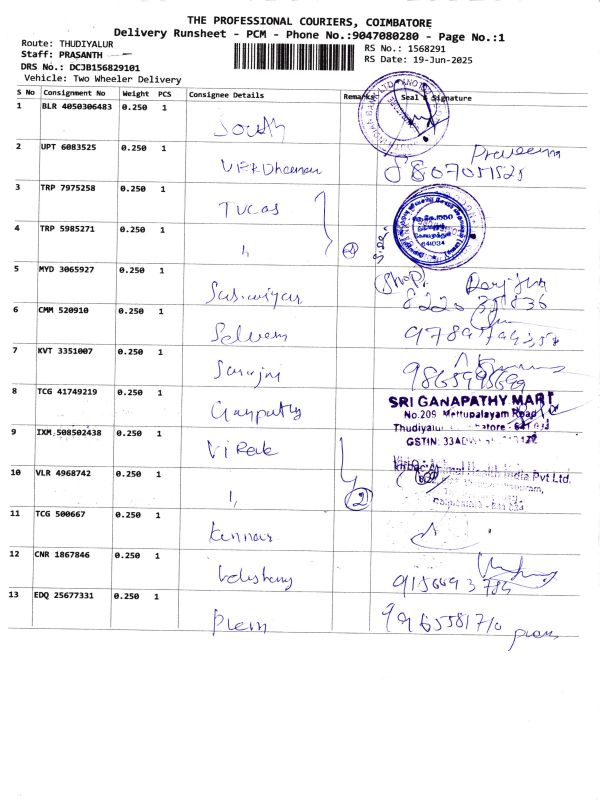 THE PROFESSIONAL COURIERS, COIMBATORE
Delivery Runsheet - PCM - Phone No.:9047080280 - Page No.:1
Route: THUDIYALUR
RS No.: 1568291
Staff: PRASANTH
RS Date: 19-Jun-2025
DRS No.: DCJB156829101
Vehicle: Two Wheeler Delivery
S No Consignment No Weight PCS Consignee Details Remarks Seal & Signature
1 BLR 4050306483 0.250 1 South
2 UPT 6083525 0.250 1 Praveena
8807051525
3 TRP 7975258 0.250 1 Tucas
4 TRP 5985271 0.250 1 "
641034
5 MYD 3065927 0.250 1 (Shop)
6 CMM 520910 0.250 1 Selvam
7 KVT 3351007 0.250 1 Sarojni
8 TCG 41749219 0.250 1 Ganpathy SRI GANAPATHY MART
No.209, Mettupalayam Road
Thudiyalur
GSTIN: 33A
9 IXM 508502438 0.250 1 Virbac
Virbac Animal Health India Pvt Ltd.
10 VLR 4968742 0.250 1 " 2
11 TCG 500667 0.250 1 Kennar
12 CNR 1867846 0.250 1
13 EDQ 25677331 0.250 1 Prem 9965581710 prem